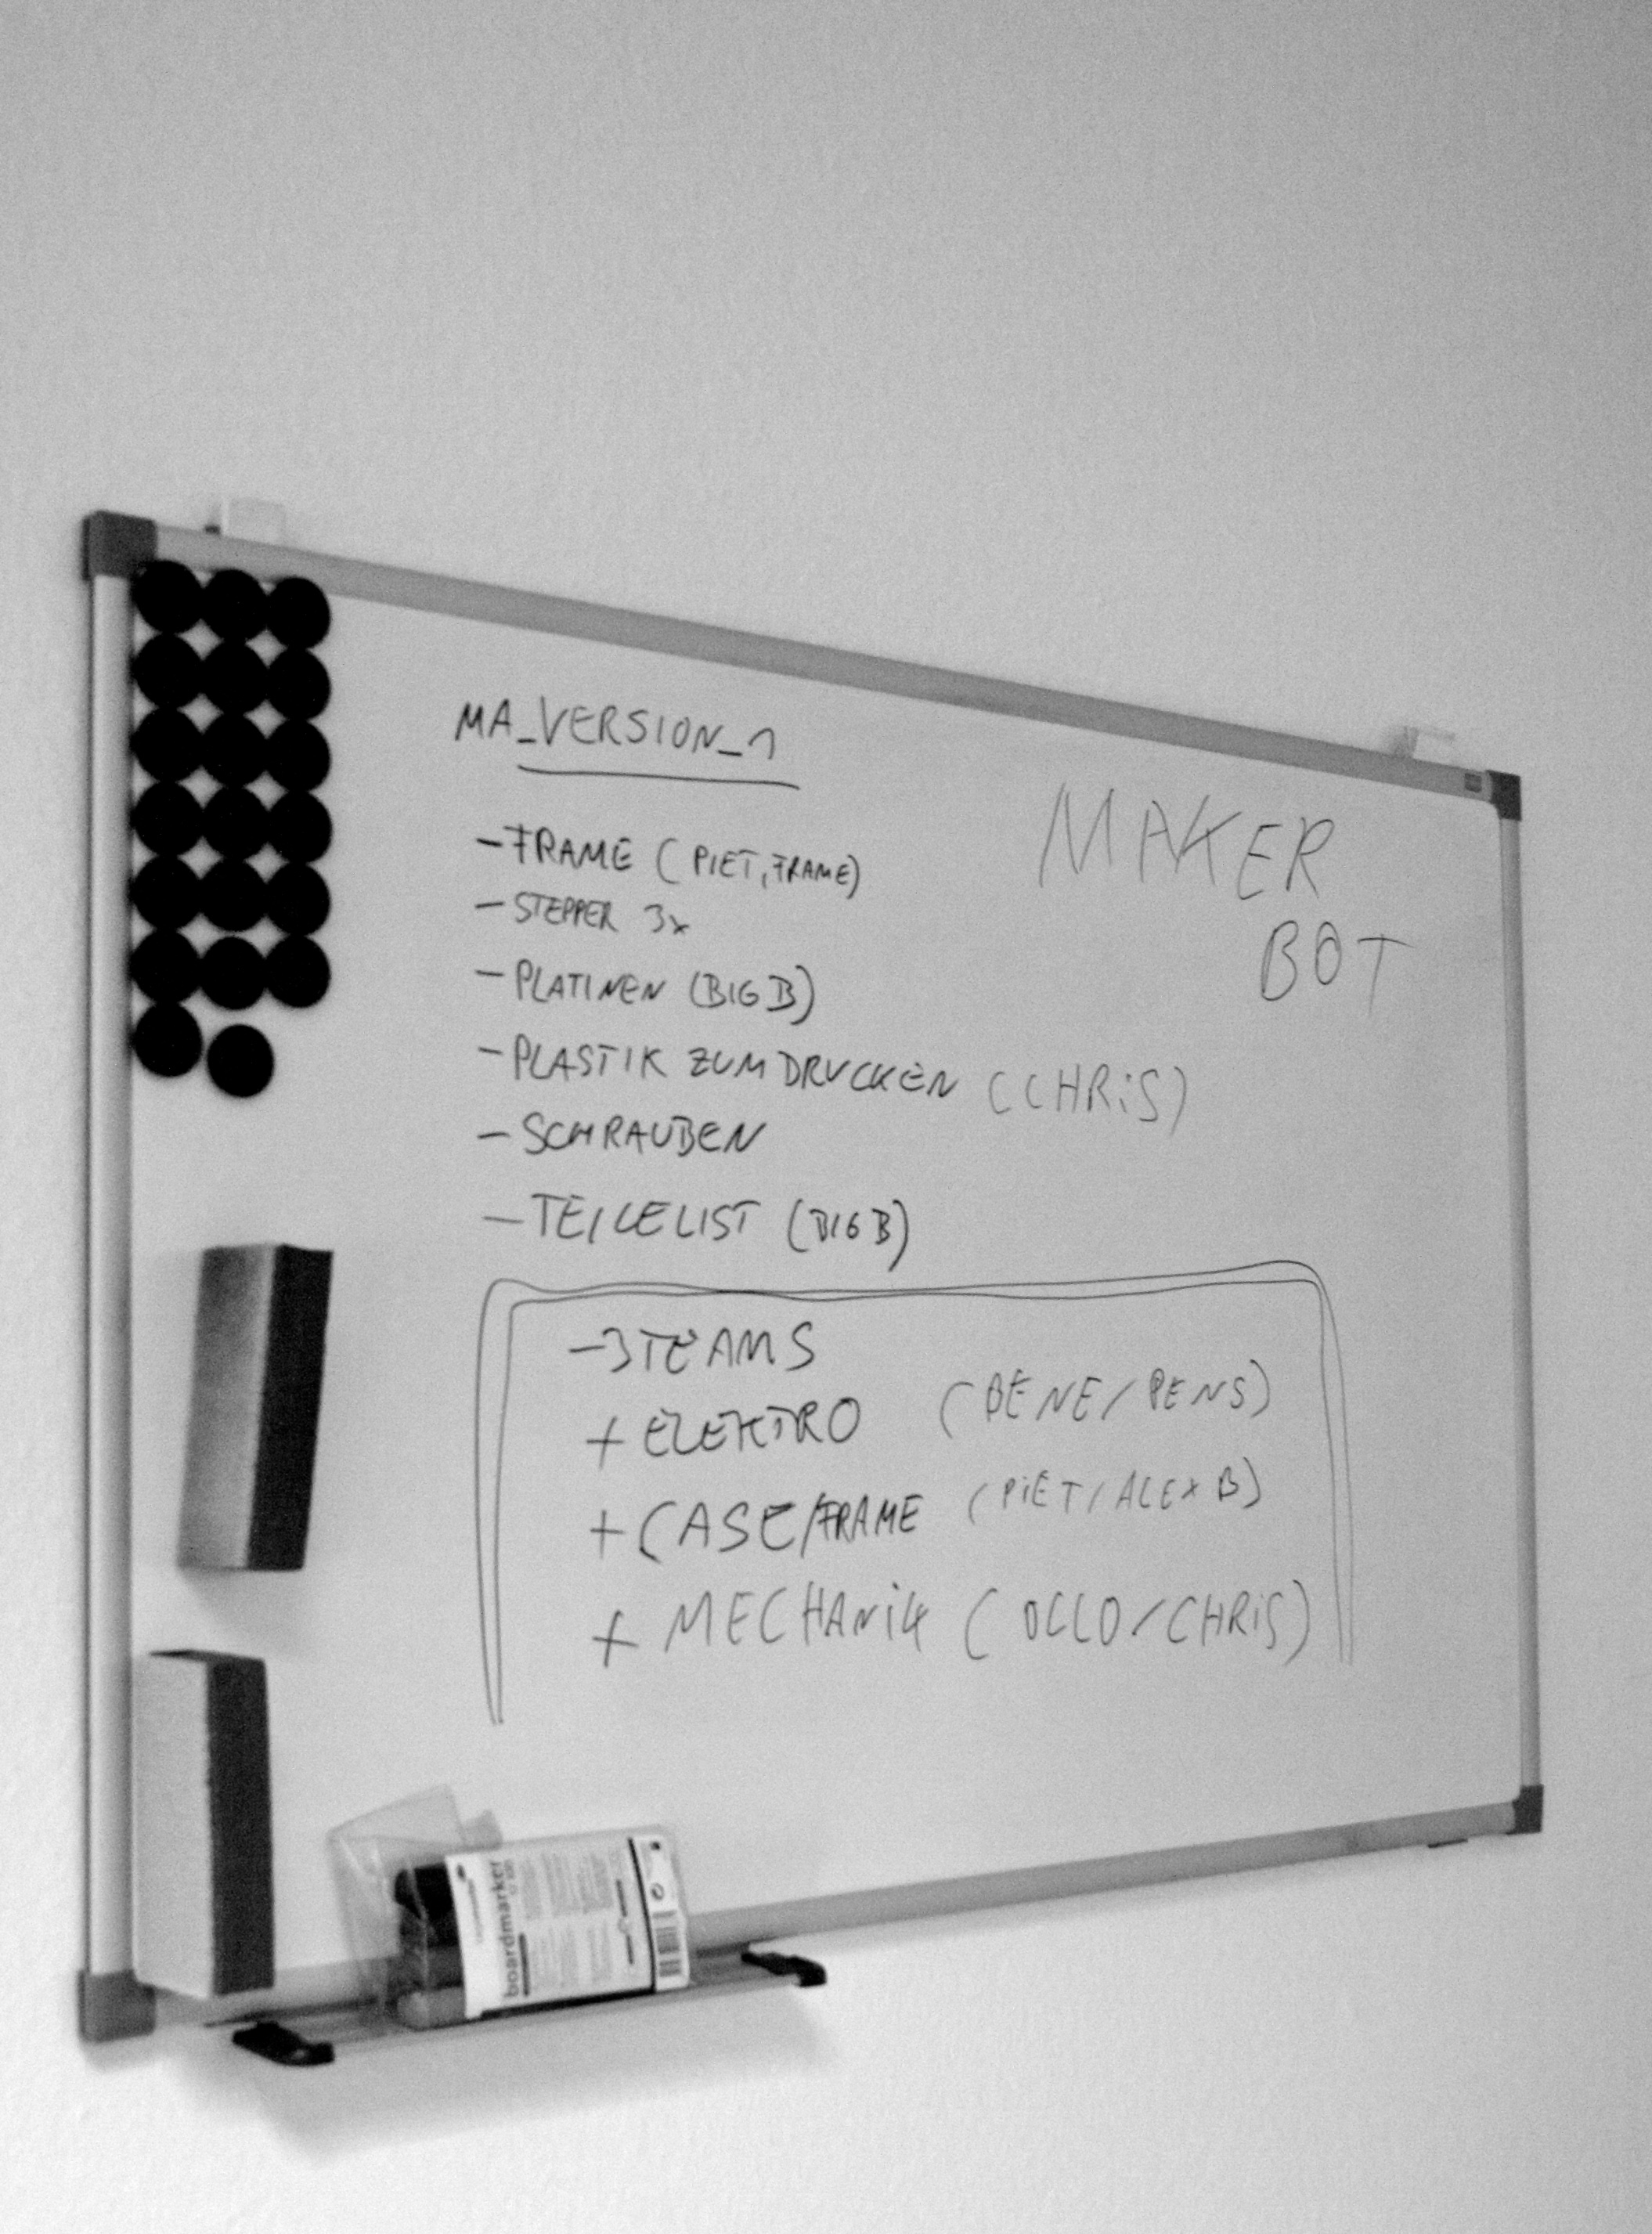 MA_VERSION_1
MAKER
BOT
- FRAME (PIET, FRAME)
- STEPPER 3x
- PLATINEN (BIG B)
- PLASTIK ZUM DRUCKEN (CHRiS)
- SCHRAUBEN
- TEILELIST (BIG B)
- 3 TEAMS
+ ELEKTRO (BENE/PENS)
+ CASE/FRAME (PiET/ALEX B)
+ MECHANiK (OLLO/CHRiS)
boardmarker